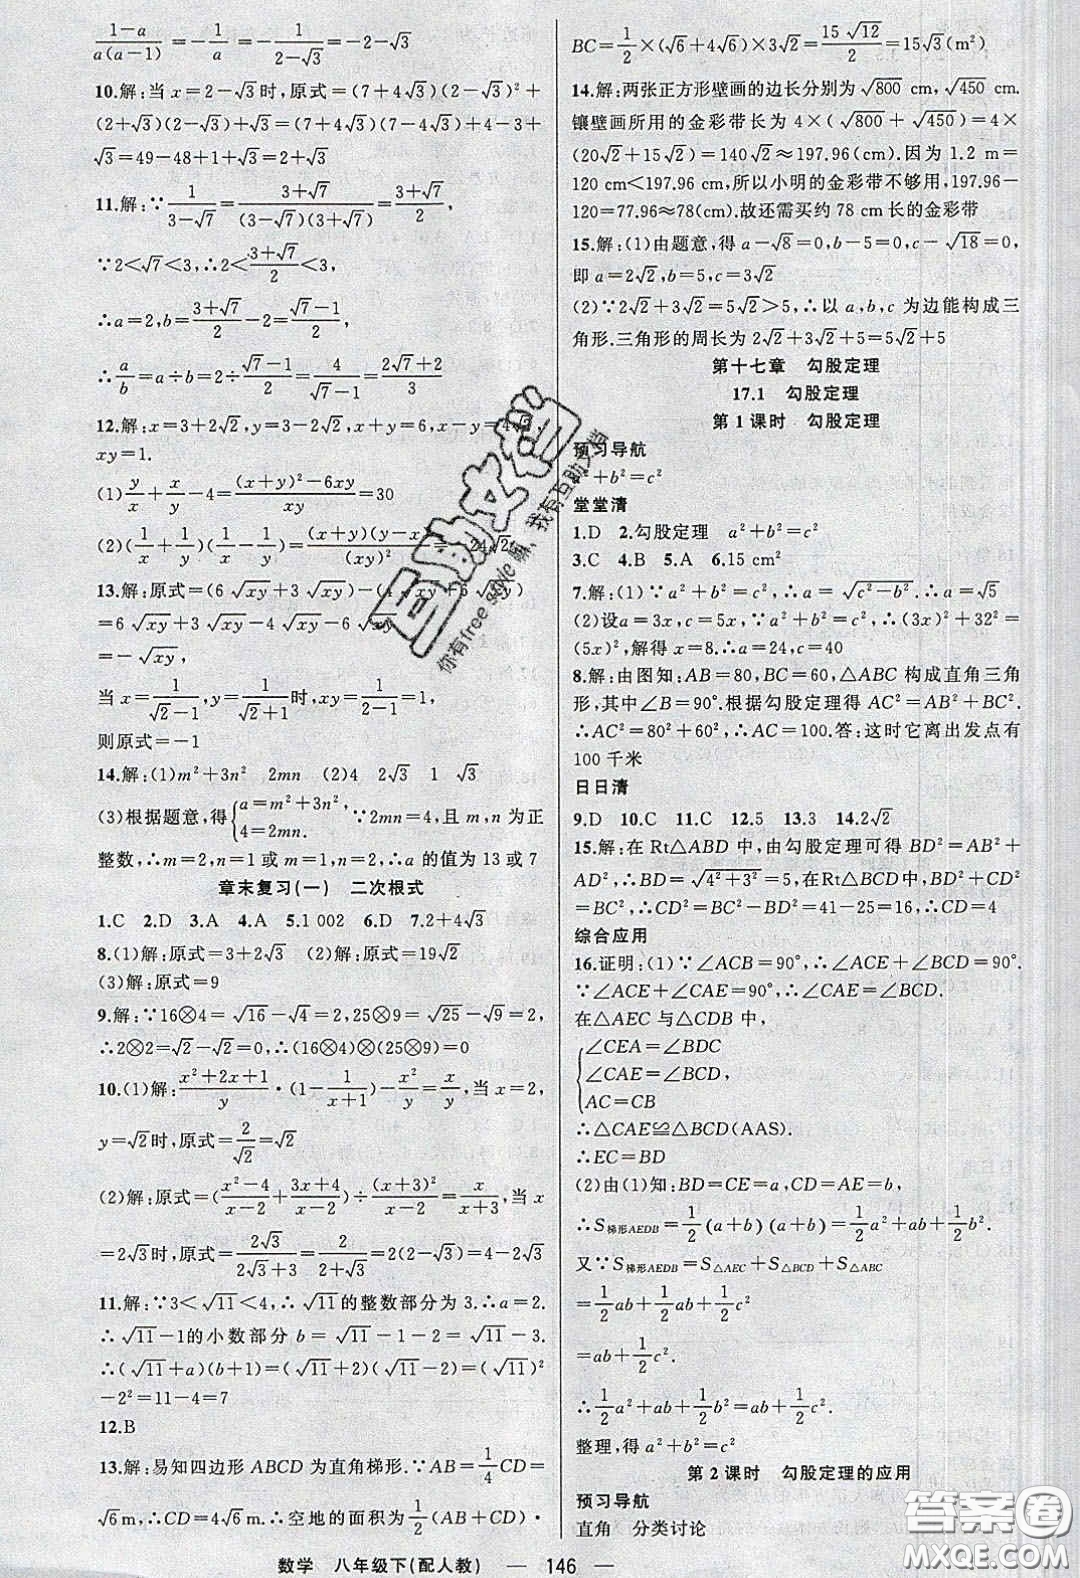 (1-a)/(a(a-1)) = -1/a = -1/(2-√3) = -2-√3
10.解:当x=2-√3时,原式=(7+4√3)(2-√3)²+
(2+√3)(2-√3)+√3=(7+4√3)(7-4√3)+4-3+
√3=49-48+1+√3=2+√3
11.解:∵1/(3-√7)=(3+√7)/((3-√7)(3+√7))=(3+√7)/2,
∵2<√7<3,∴2<(3+√7)/2<3,
∴a=2,b=(3+√7)/2-2=(√7-1)/2,
∴a/b=a÷b=2÷(√7-1)/2=4/(√7-1)=(2√7+2)/3
12.解:x=3+2√2,y=3-2√2,x+y=6,x-y=4√2
xy=1.
(1)y/x+x/y-4=((x+y)²-6xy)/xy=30
(2)(1/x+1/y)(1/x-1/y)=
13.解:原式=(6√xy+3√xy)-(
=6√xy+3√xy-4√xy-6√xy
=-√xy,
当x=1/(√2-1),y=1/(√2+1)时,xy=1/(2-1)=1,
则原式=-1
14.解:(1)m²+3n² 2mn (2)4 2√3 1 √3
(3)根据题意,得{a=m²+3n², 4=2mn. ∵2mn=4,且m,n为正
整数,∴m=2,n=1或m=1,n=2,∴a的值为13或7
章末复习(一) 二次根式
1.C 2.D 3.A 4.A 5.1 002 6.D 7.2+4√3
8.(1)解:原式=3+2√3 (2)解:原式=19√2
(3)解:原式=9
9.解:∵16⊗4=√16-√4=2,25⊗9=√25-√9=2,
∴2⊗2=√2-√2=0,∴(16⊗4)⊗(25⊗9)=0
10.(1)解:(x²+2x+1)/y·(1-1/(x+1))-x²/y=x/y,当x=2,
y=√2时,原式=2/√2=√2
(2)解:原式=((x²-4)/(x-2)+(3x+4)/(x-2))÷(x+3)²/(x-2)=x/(x+3),当x
=2√3时,原式=2√3/(2√3+3)=2/(2+√3)=2(2-√3)=4-2√3
11.解:∵3<√11<4,∴√11的整数部分为3.∴a=2.
∴√11-1的小数部分b=√11-1-2=√11-3.
∴(√11+a)(b+1)=(√11+2)(√11-2)=(√11)²
-2²=11-4=7
12.B
13.解:易知四边形ABCD为直角梯形.∵AB=1/4CD=
√6 m,∴CD=4√6 m.∴空地的面积=1/2(AB+CD)·
BC=1/2×(√6+4√6)×3√2=15√12/2=15√3(m²)
14.解:两张正方形壁画的边长分别为√800 cm,√450 cm.
镶壁画所用的金彩带长为4×(√800+√450)=4×
(20√2+15√2)=140√2≈197.96(cm).因为1.2 m=
120 cm<197.96 cm,所以小明的金彩带不够用,197.96-
120=77.96≈78(cm).故还需买约78 cm长的金彩带
15.解:(1)由题意,得a-√8=0,b-5=0,c-√18=0,
即a=2√2,b=5,c=3√2
(2)∵2√2+3√2=5√2>5,∴以a,b,c为边能构成三
角形.三角形的周长为2√2+3√2+5=5√2+5
第十七章 勾股定理
17.1 勾股定理
第1课时 勾股定理
预习导航
a²+b²=c²
堂堂清
1.D 2.勾股定理 a²+b²=c²
3.C 4.B 5.A 6.15 cm²
7.解:(1)∵a²+b²=c²,∴a=√(c²-b²).∴a=√5
(2)设a=3x,c=5x,∵a²+b²=c²,∴(3x)²+32²=
(5x)²,解得x=8.∴a=24,c=40
8.解:由图知:AB=80,BC=60,△ABC构成直角三角
形,其中∠B=90°.根据勾股定理得AC²=AB²+BC².
∴AC²=80²+60².∴AC=100.答:这时它离出发点有
100千米
日日清
9.D 10.C 11.C 12.5 13.3 14.2√2
15.解:在Rt△ABD中,由勾股定理可得BD²=AB²+
AD²,∴BD=√(4²+5²)=√41,在Rt△BCD中,BD²
=BC²+CD²,∴CD²=BD²-BC²=41-25=16,∴CD=4
综合应用
16.证明:(1)∵∠ACB=90°,∴∠ACE+∠BCD=90°.
∵∠ACE+∠CAE=90°,∴∠CAE=∠BCD.
在△AEC与△CDB中,
∠CEA=∠BDC
∠CAE=∠BCD,
AC=CB
∴△CAE≌△BCD(AAS).
∴EC=BD
(2)由(1)知:BD=CE=a,CD=AE=b,
∴S梯形AEDB=1/2(a+b)(a+b)=1/2a²+ab+1/2b².
又∵S梯形AEDB=S△AEC+S△BCD+S△ABC
=1/2ab+1/2ab+1/2c²
=ab+1/2c².
∴1/2a²+ab+1/2b²=ab+1/2c².
整理,得a²+b²=c²
第2课时 勾股定理的应用
预习导航
直角 分类讨论
数学 八年级下(配人教) — 146 —
互助文档
你有free style嘛,我有互助文档
答案圈
MXQE.COM